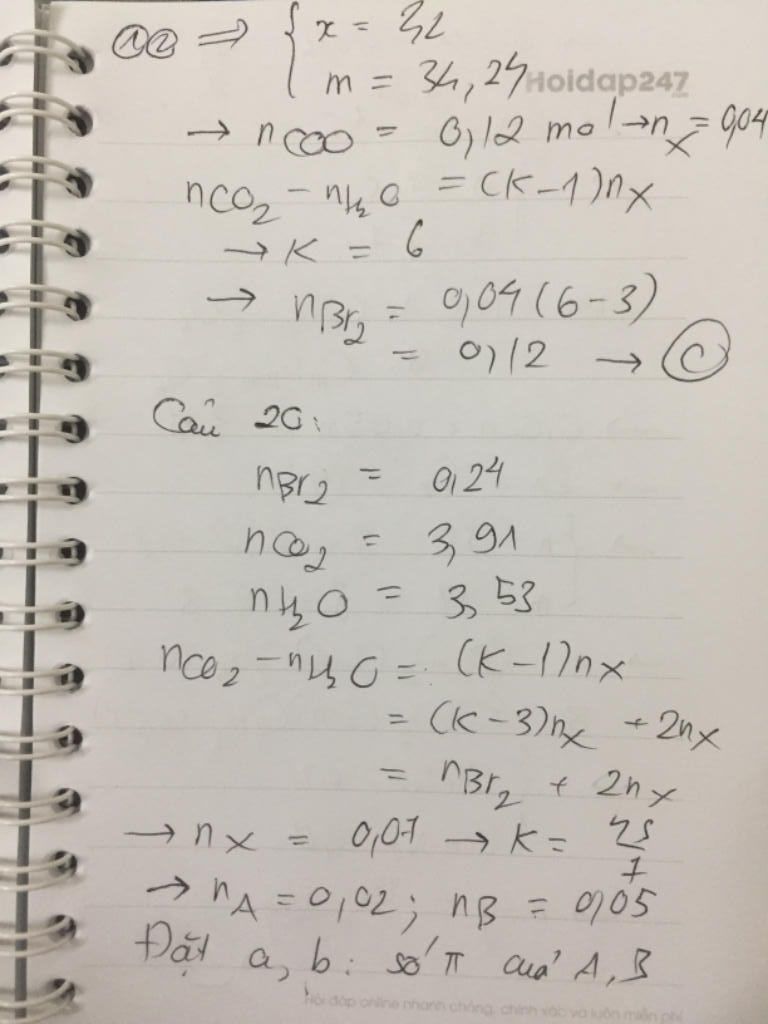 ①② ⇒ { x = 32
m = 34,24
Hoidap247
→ nCOO = 0,12 mol → nX = 0,04
nCO2 - nH2O = (K-1)nX
→ K = 6
→ nBr2 = 0,04(6-3)
= 0,12 → Ⓒ
Câu 20:
nBr2 = 0,24
nCO2 = 3,91
nH2O = 3,53
nCO2 - nH2O = (K-1)nX
= (K-3)nX + 2nX
= nBr2 + 2nX
→ nX = 0,07 → K = 45/7
→ nA = 0,02; nB = 0,05
Đặt a, b: số π của A, B
Hỏi đáp online nhanh chóng, chính xác và luôn miễn phí